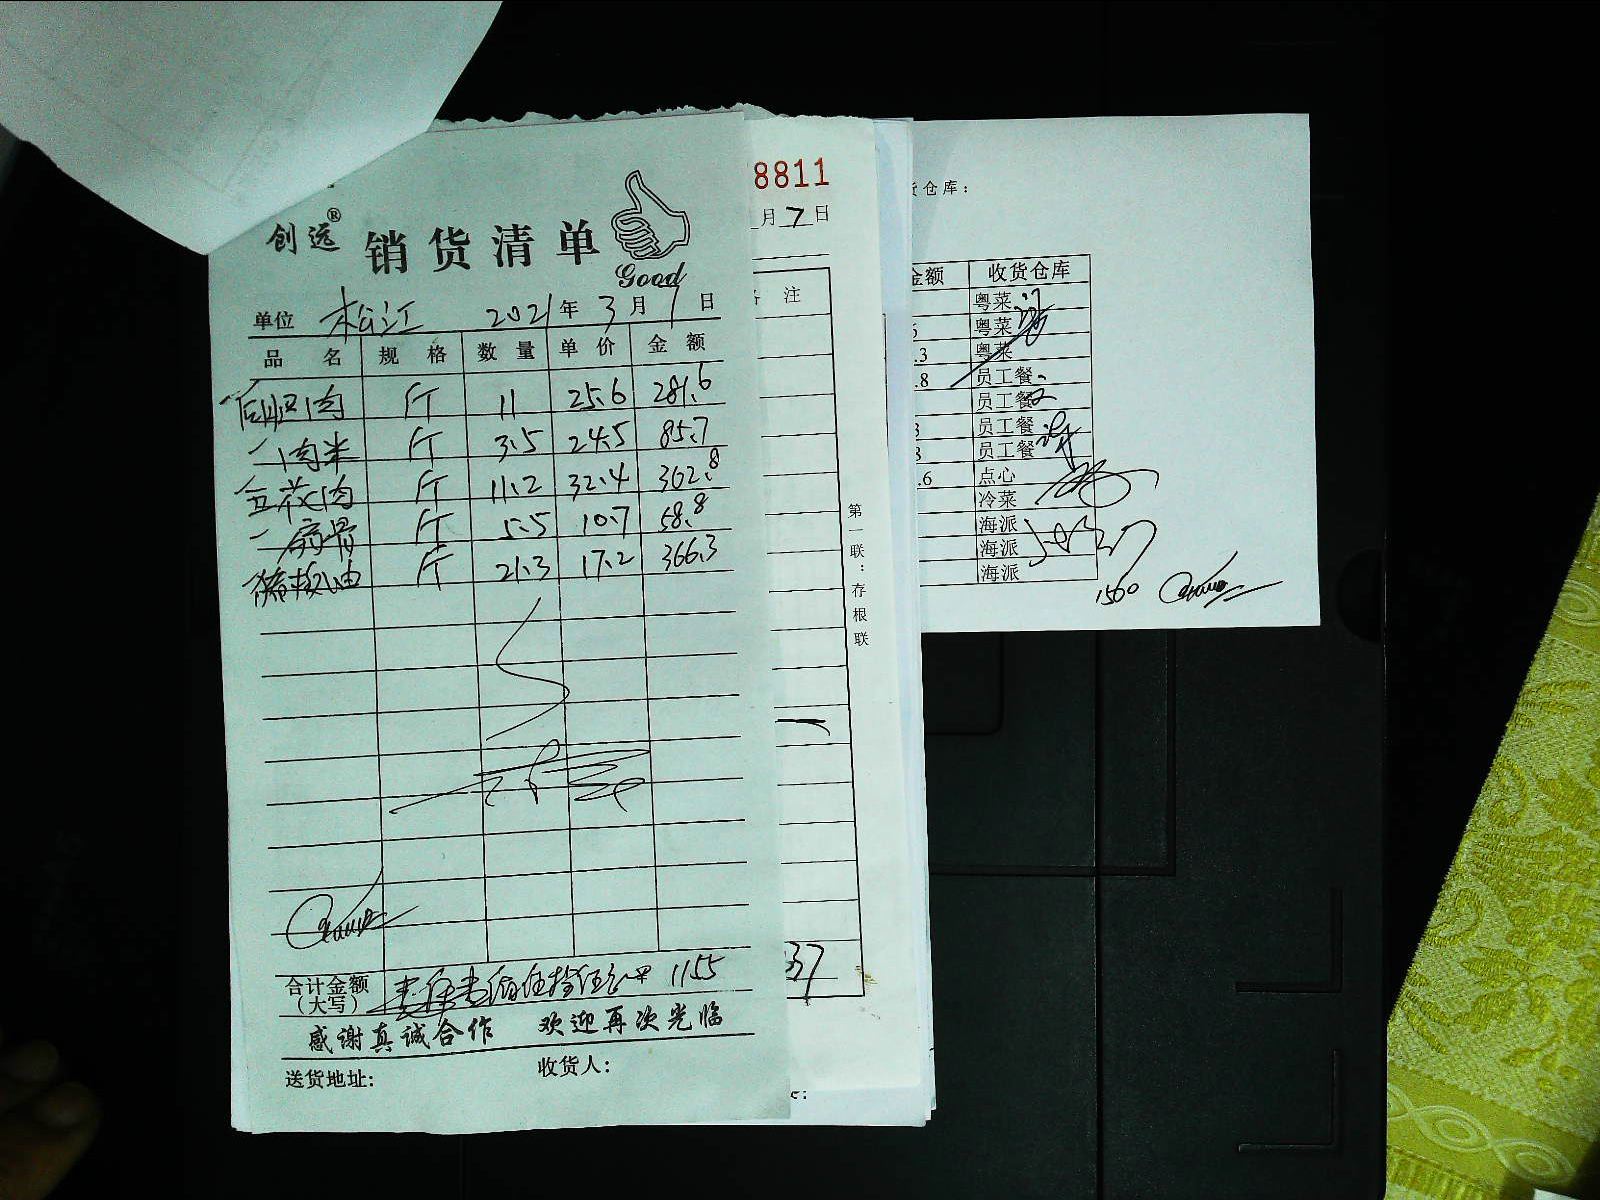 创远® 销货清单
Good
单位 松江 2021年3月9日
品名 规格 数量 单价 金额
后腿肉 斤 11 25.6 281.6
肉米 斤 3.5 24.5 85.7
五花肉 斤 11.2 32.4 362.8
扇骨 斤 5.5 10.7 58.8
猪板油 斤 21.3 17.2 366.3
合计金额(大写) 壹仟壹佰伍拾伍元 1155
感谢真诚合作 欢迎再次光临
送货地址: 收货人:
8811
月7日
备注
第一联:存根联
337
货仓库:
金额 收货仓库
粤菜
粤菜
.3 粤菜
.8 员工餐
员工餐
员工餐
员工餐
.6 点心
冷菜
海派
海派
海派
1560